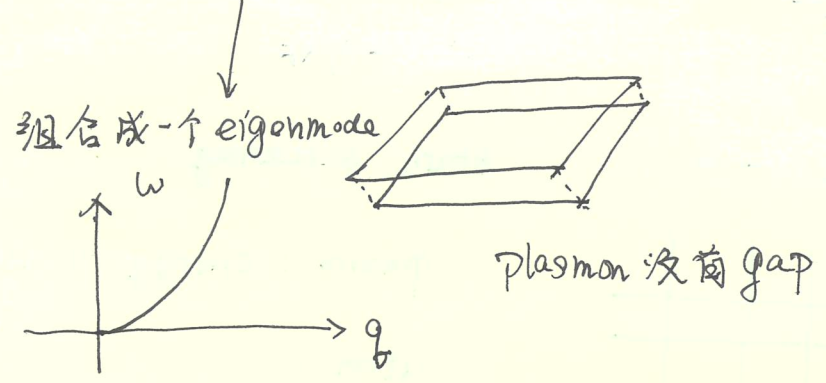 组合成一个 eigenmode
ω
plasmon 没有 gap
q